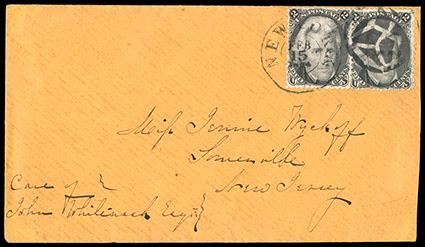 2 U.S. POSTAGE 2 2 U.S. POSTAGE 2
NEW
FEB
15
CENTS
Miss Jennie Wyckoff
Somerville
New Jersey
Care of
John Whitenack Esqr